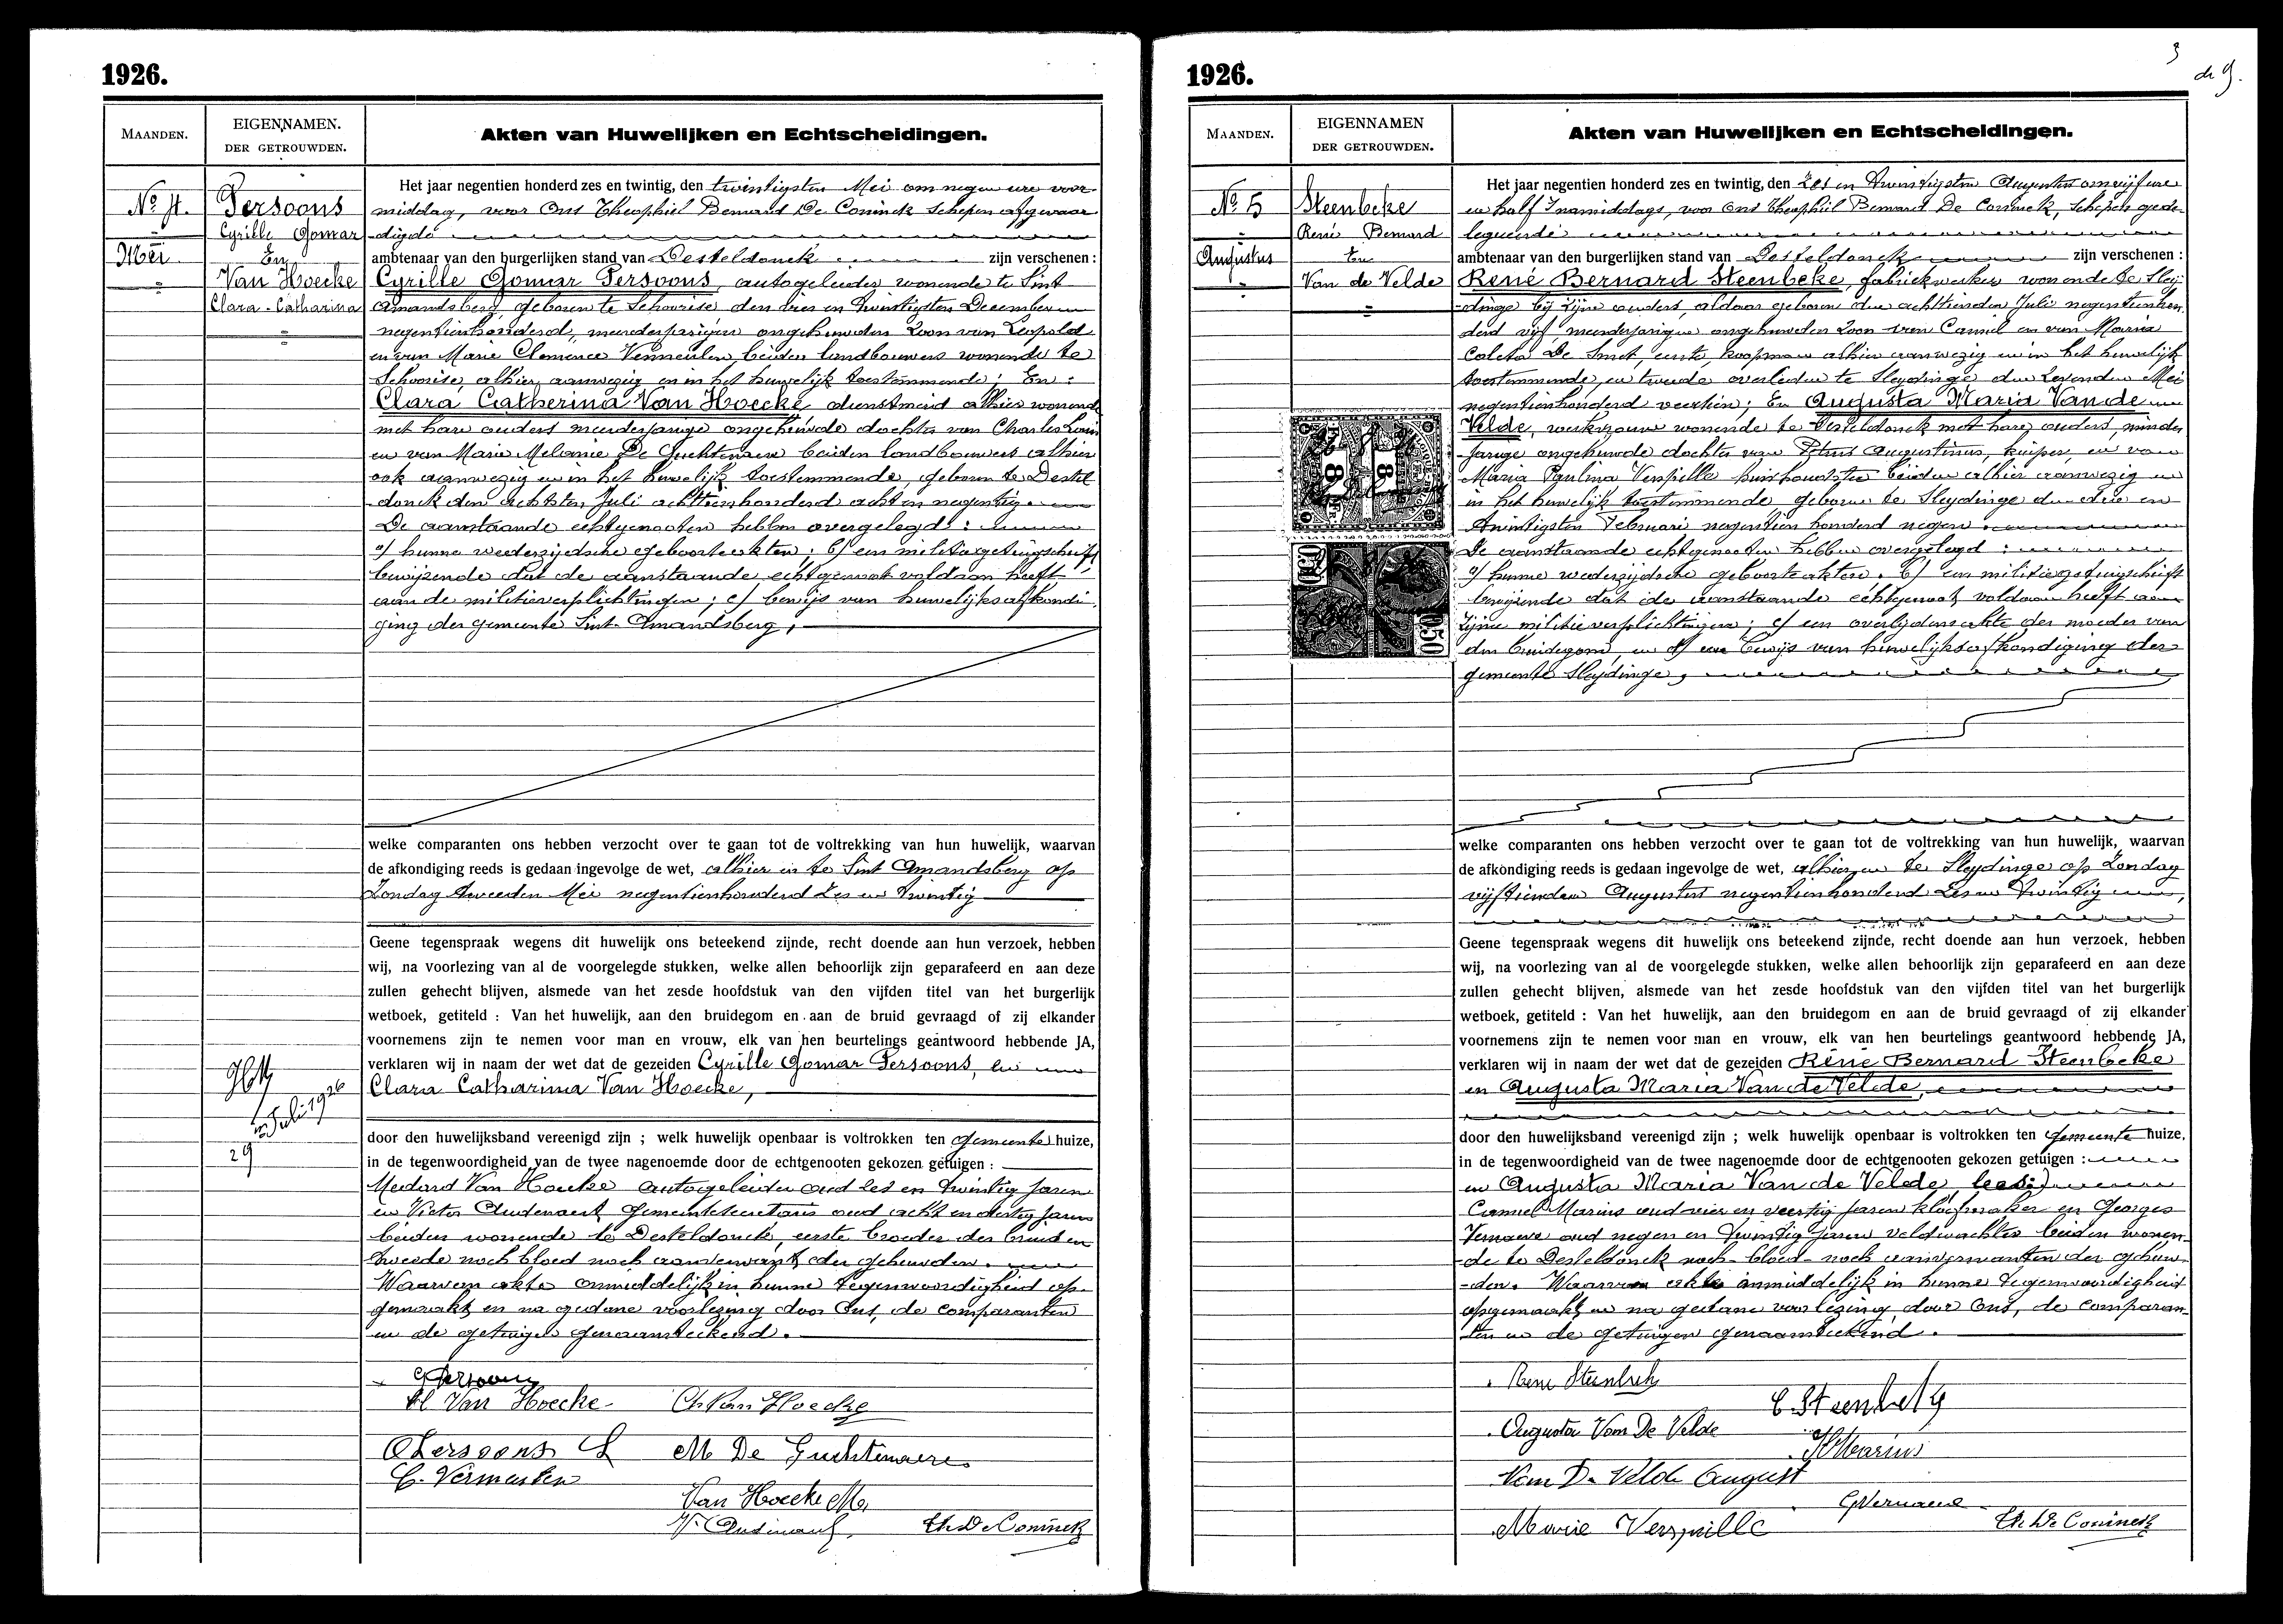 1926.
MAANDEN.
EIGENNAMEN.
DER GETROUWDEN.
Akten van Huwelijken en Echtscheidingen.
No 4.
Mei
Persoons
Cyrille Gomar
En
Van Hoecke
Clara-Catharina
Het jaar negentien honderd zes en twintig, den twintigsten Mei om negen ure voor-
middag, voor Ons Theophiel Bernard De Coninck Schepen afgevaar
digde
ambtenaar van den burgerlijken stand van Desteldonck zijn verschenen :
Cyrille Gomar Persoons, autogeleider wonende te Sint
Amandsberg, geboren te Schoorise den vier en twintigsten December
negentienhonderd, meerderjarigen ongehuwden zoon van Leopold
en van Marie Clemence Vermeulen, beiden landbouwers wonende te
Schoorise, alhier aanwezig en in het huwelijk toestemmende; En:
Clara Catherina Van Hoecke dienstmeid alhier wonende
met hare ouders meerderjarige ongehuwde dochter van Charles Louis
en van Marie Melanie De Guchtenaere beiden landbouwers alhier
ook aanwezig en in het huwelijk toestemmende, geboren te Destel
donck den achtsten Juli achttienhonderd acht en negentig.
De aanstaande echtgenooten hebben overgelegd:
a/ hunne wederzijdsche geboorteakten; b/ een militiegetuigschrift
bewijzende dat de aanstaande echtgenoot voldaan heeft
aan de militieverplichtingen; c/ bewijs van huwelijksafkondi-
ging der gemeente Sint-Amandsberg,
welke comparanten ons hebben verzocht over te gaan tot de voltrekking van hun huwelijk, waarvan
de afkondiging reeds is gedaan ingevolge de wet, alhier en te Sint Amandsberg op
Zondag tweeden Mei negentienhonderd zes en twintig
Geene tegenspraak wegens dit huwelijk ons beteekend zijnde, recht doende aan hun verzoek, hebben
wij, na voorlezing van al de voorgelegde stukken, welke allen behoorlijk zijn geparafeerd en aan deze
zullen gehecht blijven, alsmede van het zesde hoofdstuk van den vijfden titel van het burgerlijk
wetboek, getiteld : Van het huwelijk, aan den bruidegom en aan de bruid gevraagd of zij elkander
voornemens zijn te nemen voor man en vrouw, elk van hen beurtelings geantwoord hebbende JA,
verklaren wij in naam der wet dat de gezeiden Cyrille Gomar Persoons, en
Clara Catharina Van Hoecke,
Juli 1926
29
door den huwelijksband vereenigd zijn ; welk huwelijk openbaar is voltrokken ten Gemeente huize,
in de tegenwoordigheid van de twee nagenoemde door de echtgenooten gekozen getuigen :
Medard Van Hoecke autogeleider oud zes en twintig jaren
en Victor Audenaert Gemeentesecretaris oud acht en dertig jaren
beiden wonende te Desteldonck, eerste broeder der bruid en
tweede noch bloed noch aanverwant der gehuwden.
Waarvan akte onmiddelijk in hunne tegenwoordigheid op-
gemaakt en na gedane voorlezing door Ons, de comparanten
en de getuigen genaamteekend.
C Persoons
Cl Van Hoecke
Ch Van Hoecke
M De Guchtenaere
C. Vermeulen
Van Hoecke Me
V. Audenaert
Th. De Coninck
3
1926.
MAANDEN.
EIGENNAMEN
DER GETROUWDEN.
Akten van Huwelijken en Echtscheidingen.
No 5
Augustus
Steenbeke
René Bernard
En
Van de Velde
Het jaar negentien honderd zes en twintig, den Zes en twintigsten Augustus om vijf ure
en half 's namiddags, voor Ons Theophiel Bernard De Coninck, schepen gede-
legueerde
ambtenaar van den burgerlijken stand van Desteldonck zijn verschenen :
René Bernard Steenbeke, fabriekwerker wonende te Sley-
dinge bij zijne ouders, aldaar geboren den achttienden Juli negentienhon-
derd vijf, meerderjarigen ongehuwden zoon van Camiel en van Maria
Coleta De Smet, eerste, koopman alhier aanwezig en in het huwelijk
toestemmende, en tweede overleden te Sleydinge den zevenden Mei
negentienhonderd veertien; En Augusta Maria Van de
Velde, werkvrouw wonende te Desteldonck met hare ouders, minder
jarige ongehuwde dochter van Petrus Augustinus, kuiper, en van
Maria Paulina Verspille huishoudster beiden alhier aanwezig en
in het huwelijk toestemmende geboren te Sleydinge den drie en
twintigsten Februari negentien honderd negen.
De aanstaande echtgenooten hebben overgelegd :
a/ hunne wederzijdsche geboorteakten. b/ een militiegetuigschrift
bewijzende dat de aanstaande echtgenoot voldaan heeft aan
zijne militieverplichtingen; c/ een overlijdensakte der moeder van
den bruidegom, en d/ een bewijs van huwelijksafkondiging der
gemeente Sleydinge,
welke comparanten ons hebben verzocht over te gaan tot de voltrekking van hun huwelijk, waarvan
de afkondiging reeds is gedaan ingevolge de wet, alhier en te Sleydinge op Zondag
vijftienden Augustus negentienhonderd zes en twintig
Geene tegenspraak wegens dit huwelijk ons beteekend zijnde, recht doende aan hun verzoek, hebben
wij, na voorlezing van al de voorgelegde stukken, welke allen behoorlijk zijn geparafeerd en aan deze
zullen gehecht blijven, alsmede van het zesde hoofdstuk van den vijfden titel van het burgerlijk
wetboek, getiteld : Van het huwelijk, aan den bruidegom en aan de bruid gevraagd of zij elkander
voornemens zijn te nemen voor man en vrouw, elk van hen beurtelings geantwoord hebbende JA,
verklaren wij in naam der wet dat de gezeiden René Bernard Steenbeke
en Augusta Maria Van de Velde,
door den huwelijksband vereenigd zijn ; welk huwelijk openbaar is voltrokken ten Gemeente huize,
in de tegenwoordigheid van de twee nagenoemde door de echtgenooten gekozen getuigen :
en Augusta Maria Van de Velde,
Camiel Marius oud vier en veertig jaren kloefmaker en Georges
Vernaeve oud negen en twintig jaren veldwachter beiden wonen-
de te Desteldonck noch-bloed-noch aanverwanten der gehuw-
-den. Waarvan akte inmiddelijk in hunne tegenwoordigheid
opgemaakt en na gedane voorlezing door Ons, de comparan-
ten en de getuigen genaamteekend.
Rene Steenbeke
C Steenbeke
Augusta Van De Velde
Marius
Van De Velde August
G Vernaeve
Marie Verspille
Th. De Coninck